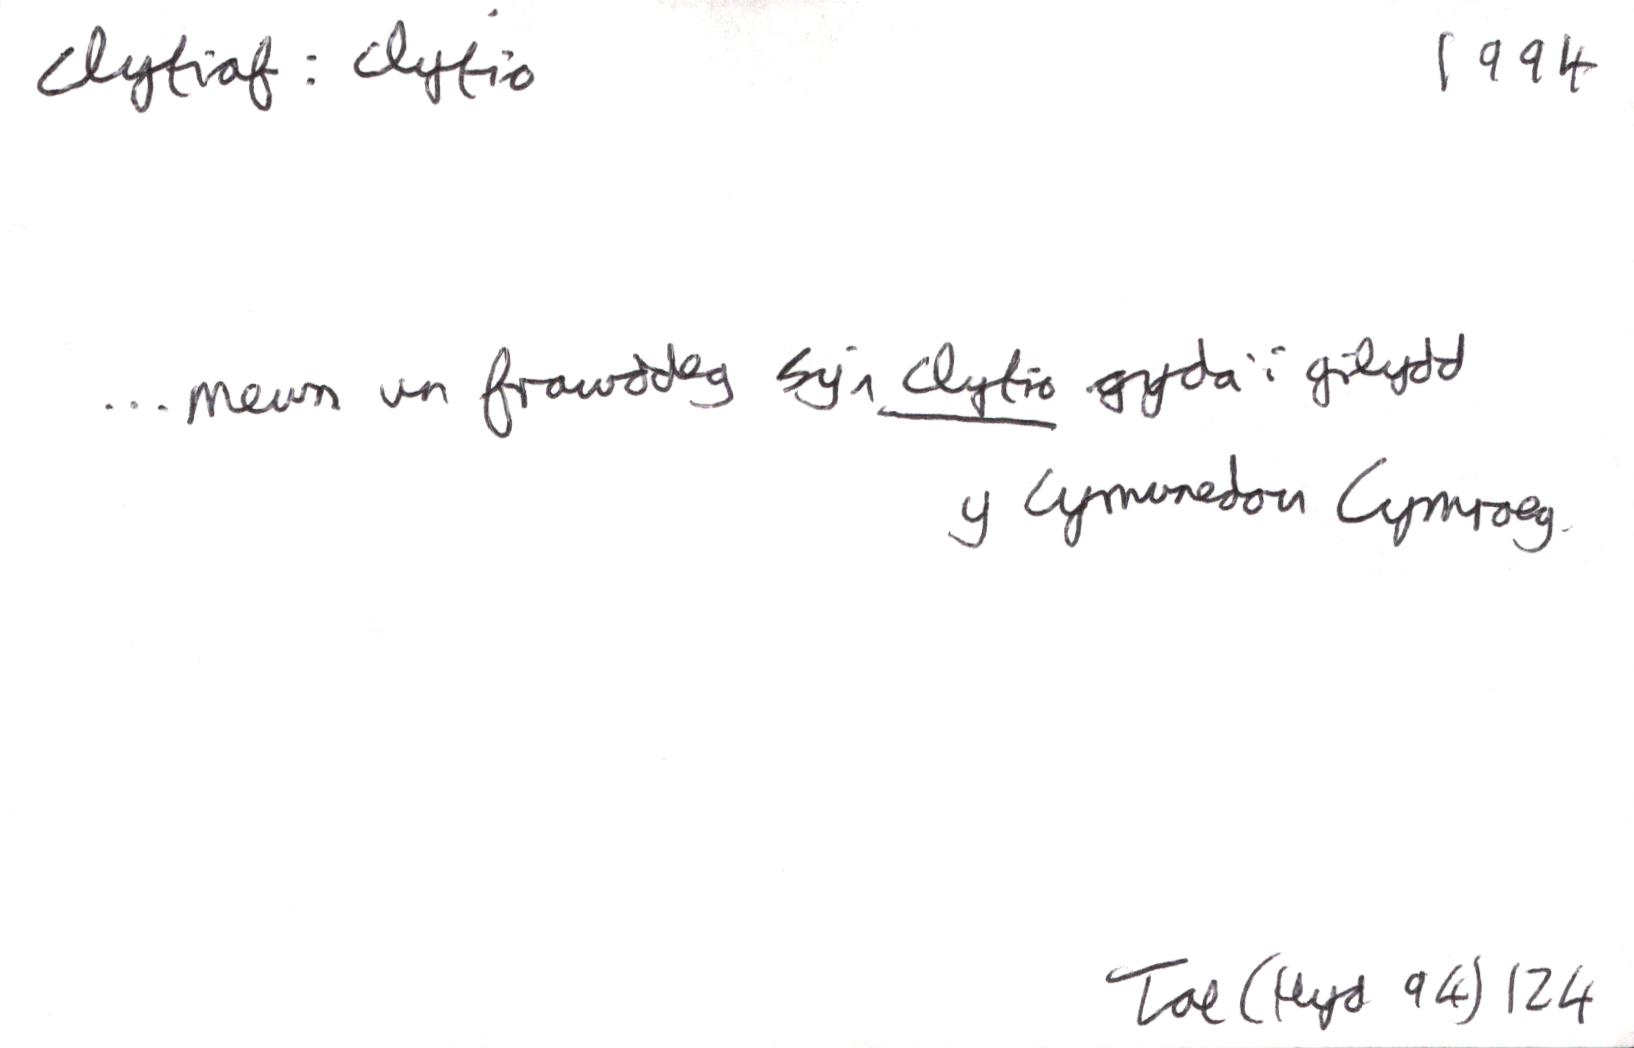 clytiaf : clytio 1994
... mewn un frawddeg sy'n clytio gyda'i gilydd
y Cymunedau Cymraeg.
Tae (Hyd 94) 124